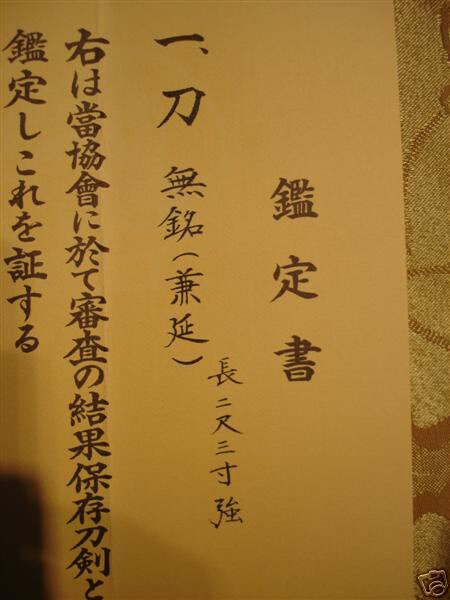 鑑定書
一、刀 無銘（兼延）
長二尺三寸強
右は當協會に於て審査の結果保存刀剣と
鑑定しこれを証する